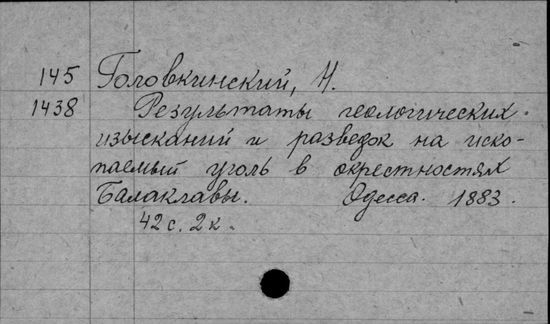 145 Головкинский, Н.
1438 Результаты геологических
изысканий и разведок на иско-
паемый уголь в окрестностях
Балаклавы. Одесса. 1883.
42 с. 2 к.